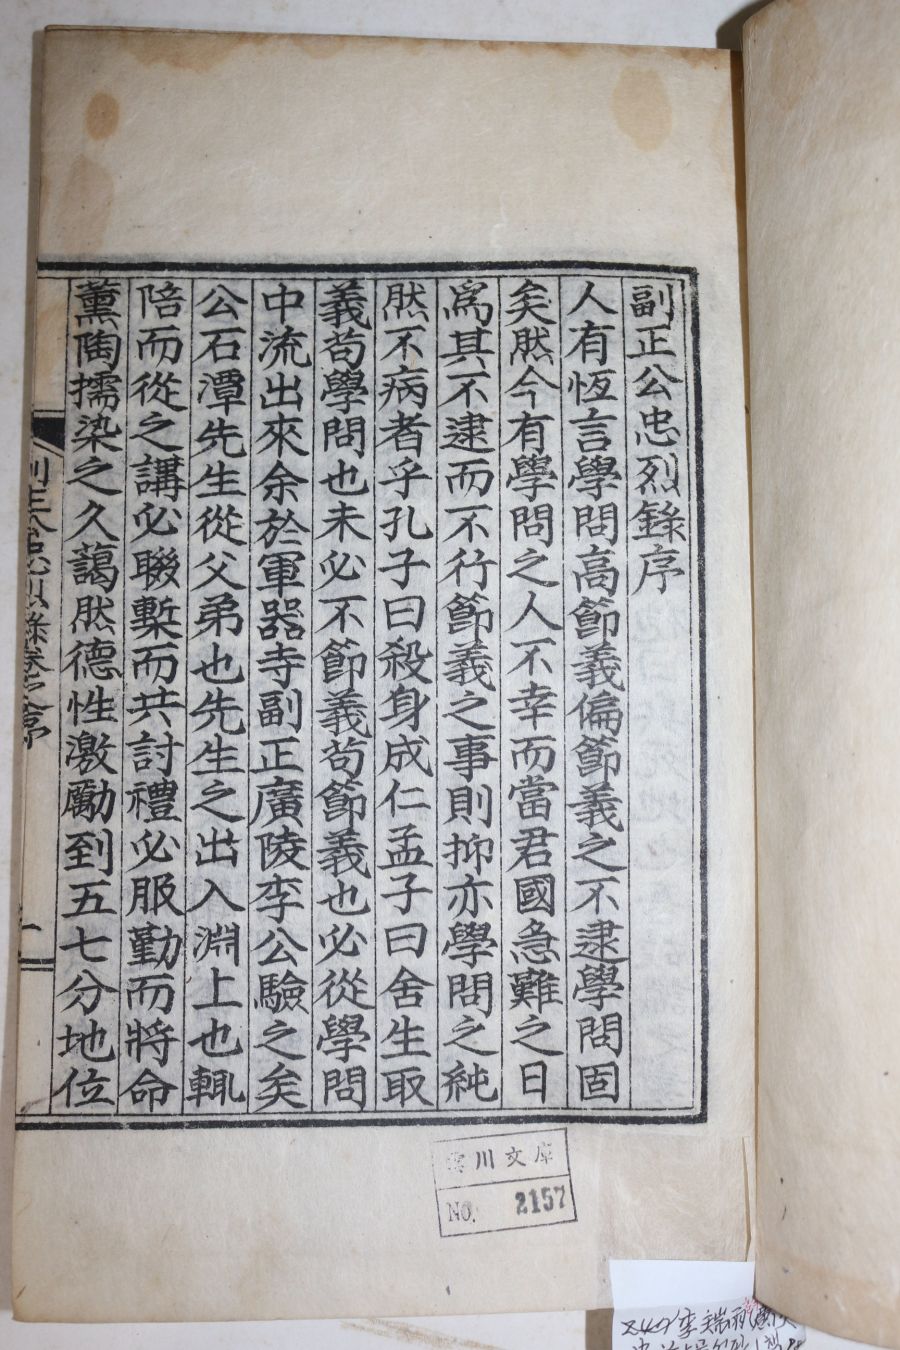 副正公忠烈錄序
人有恆言學問高節義偏節義之不逮學問固
矣然今有學問之人不幸而當君國急難之日
爲其不逮而不行節義之事則抑亦學問之純
然不病者乎孔子曰殺身成仁孟子曰舍生取
義苟學問也未必不節義苟節義也必從學問
中流出來余於軍器寺副正廣陵李公驗之矣
公石潭先生從父弟也先生之出入淵上也輒
陪而從之講必聯槧而共討禮必服勤而將命
薰陶擩染之久藹然德性激勵到五七分地位
副正公忠烈錄卷之全序
一
川文庫
NO. 2157